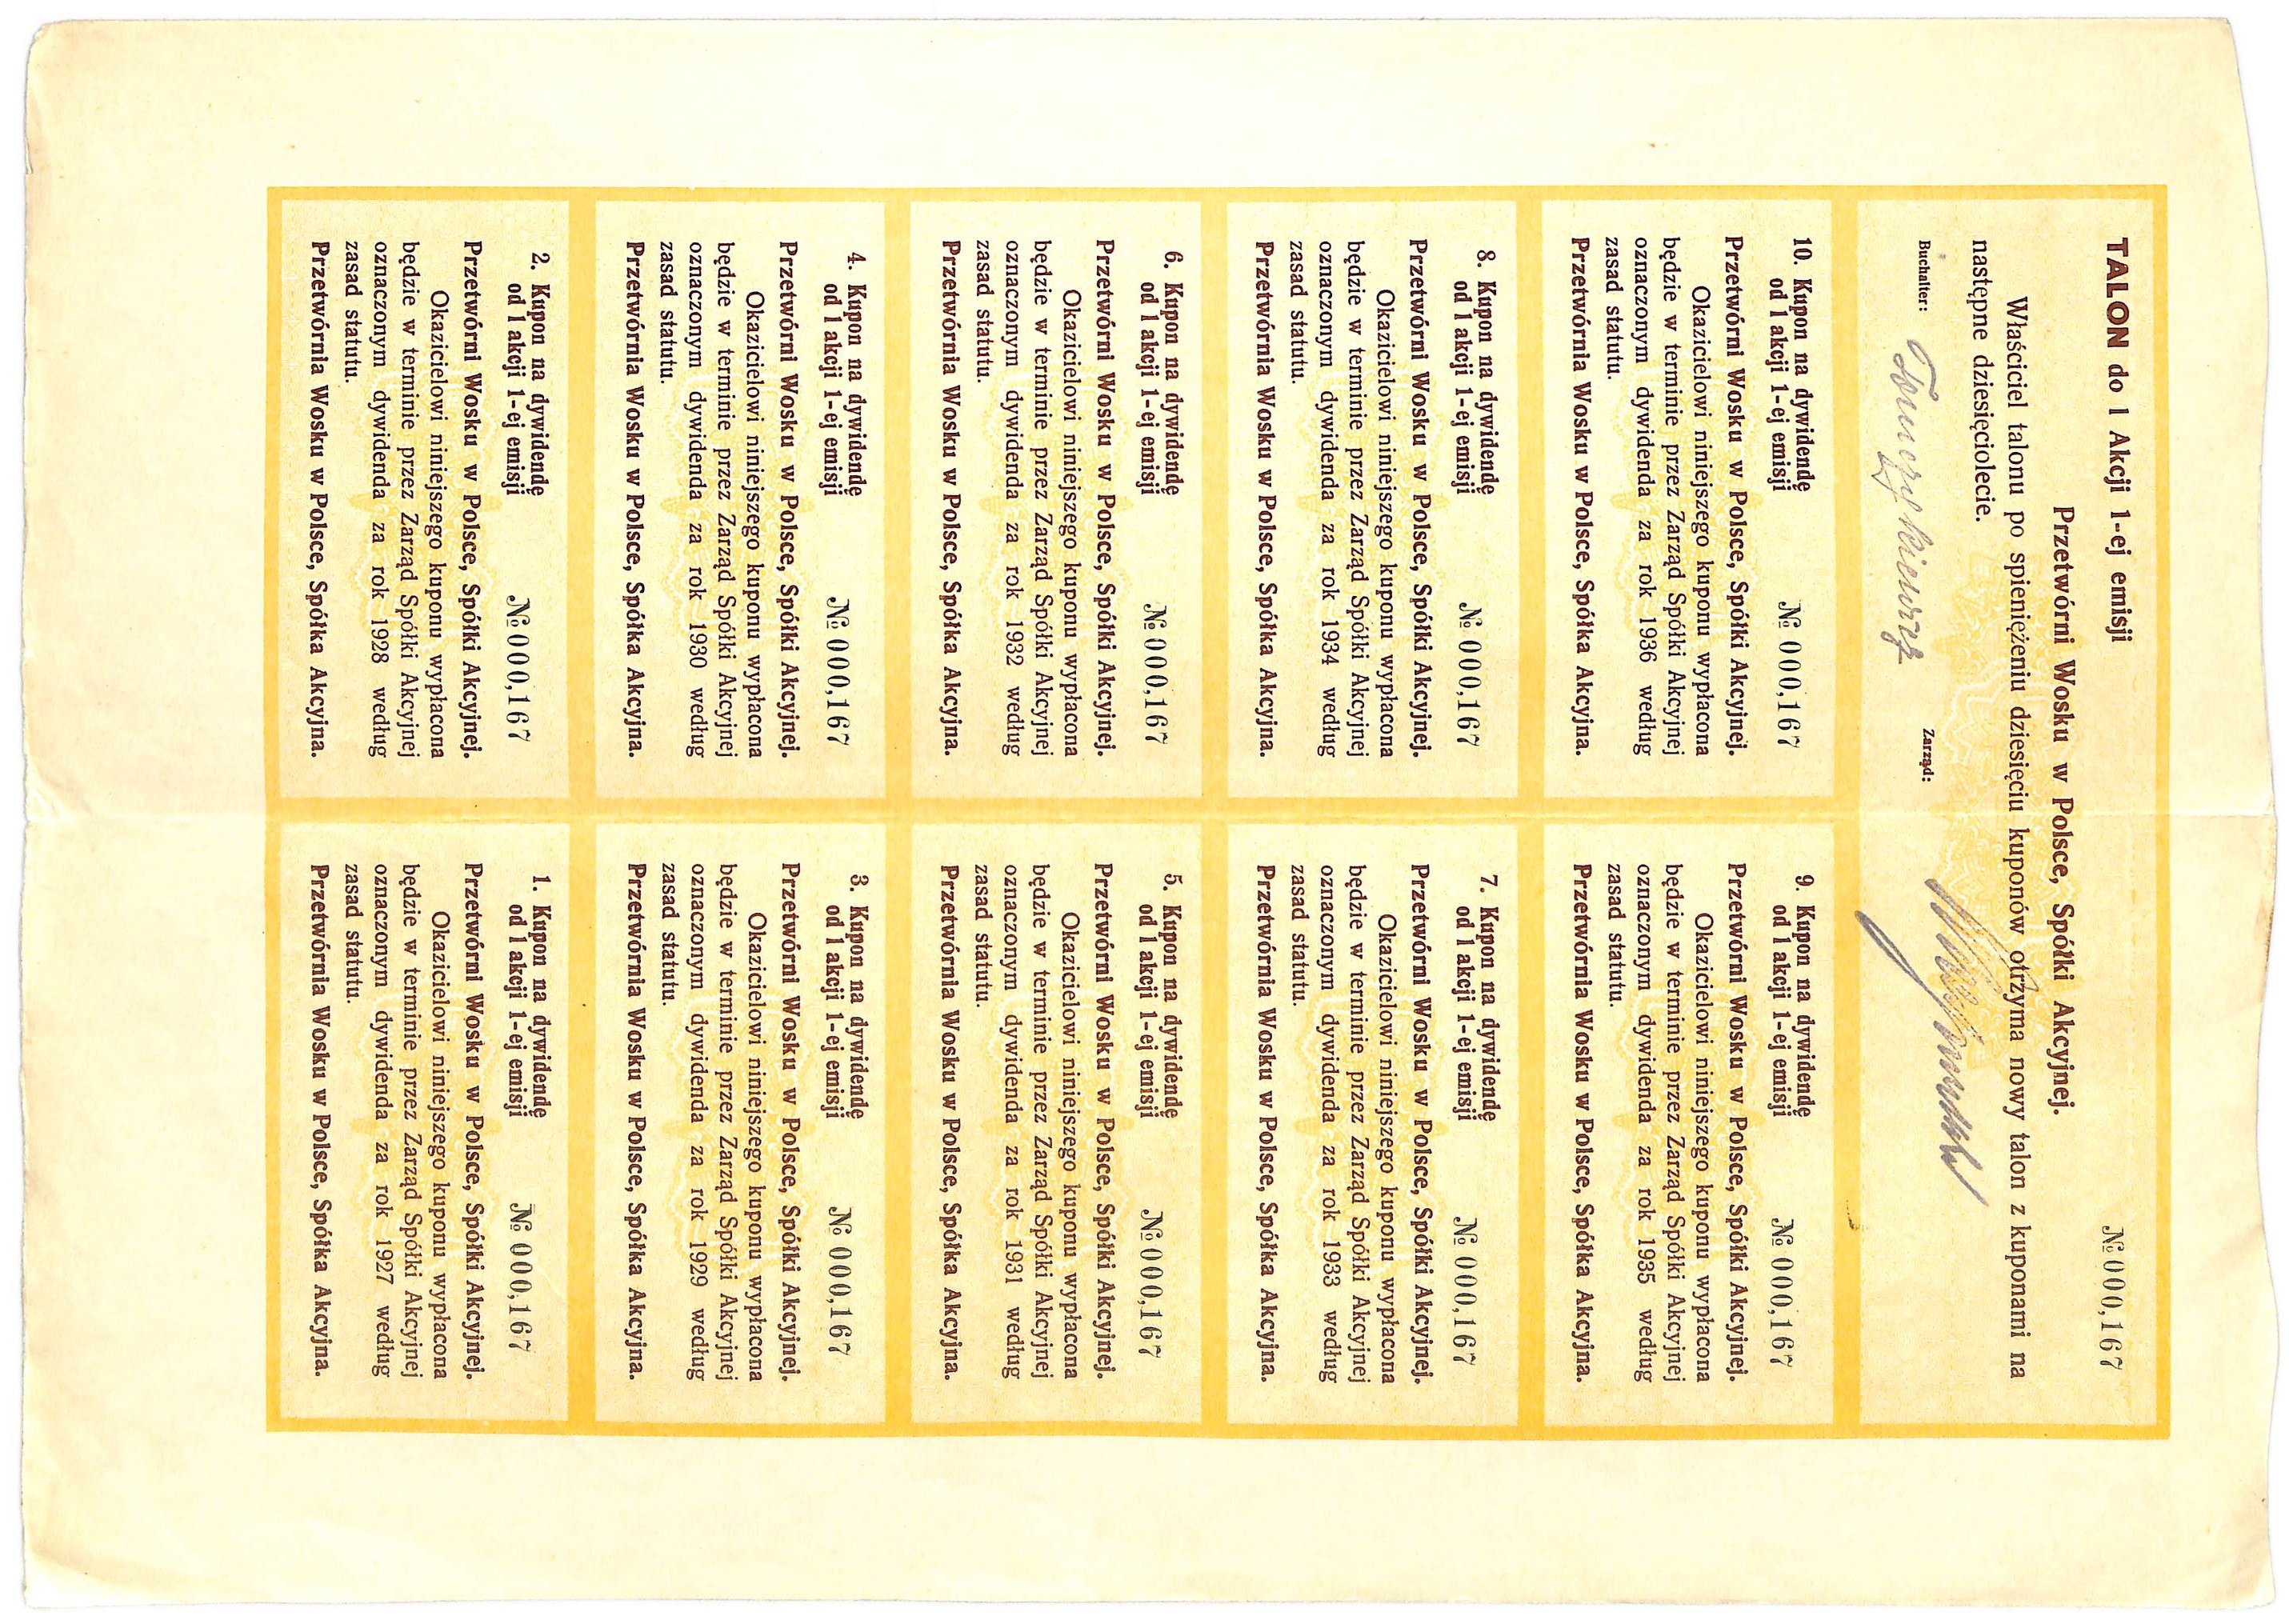 TALON do 1 Akcji 1-ej emisji № 000,167
Przetwórni Wosku w Polsce, Spółki Akcyjnej.
Właściciel talonu po spieniężeniu dziesięciu kuponów otrzyma nowy talon z kuponami na
następne dziesięciolecie.
Buchalter: Zarząd:
10. Kupon na dywidendę
od 1 akcji 1-ej emisji № 000,167
Przetwórni Wosku w Polsce, Spółki Akcyjnej.
Okazicielowi niniejszego kuponu wypłacona
będzie w terminie przez Zarząd Spółki Akcyjnej
oznaczonym dywidenda za rok 1936 według
zasad statutu.
Przetwórnia Wosku w Polsce, Spółka Akcyjna.
9. Kupon na dywidendę
od 1 akcji 1-ej emisji № 000,167
Przetwórni Wosku w Polsce, Spółki Akcyjnej.
Okazicielowi niniejszego kuponu wypłacona
będzie w terminie przez Zarząd Spółki Akcyjnej
oznaczonym dywidenda za rok 1935 według
zasad statutu.
Przetwórnia Wosku w Polsce, Spółka Akcyjna.
8. Kupon na dywidendę
od 1 akcji 1-ej emisji № 000,167
Przetwórni Wosku w Polsce, Spółki Akcyjnej.
Okazicielowi niniejszego kuponu wypłacona
będzie w terminie przez Zarząd Spółki Akcyjnej
oznaczonym dywidenda za rok 1934 według
zasad statutu.
Przetwórnia Wosku w Polsce, Spółka Akcyjna.
7. Kupon na dywidendę
od 1 akcji 1-ej emisji № 000,167
Przetwórni Wosku w Polsce, Spółki Akcyjnej.
Okazicielowi niniejszego kuponu wypłacona
będzie w terminie przez Zarząd Spółki Akcyjnej
oznaczonym dywidenda za rok 1933 według
zasad statutu.
Przetwórnia Wosku w Polsce, Spółka Akcyjna.
6. Kupon na dywidendę
od 1 akcji 1-ej emisji № 000,167
Przetwórni Wosku w Polsce, Spółki Akcyjnej.
Okazicielowi niniejszego kuponu wypłacona
będzie w terminie przez Zarząd Spółki Akcyjnej
oznaczonym dywidenda za rok 1932 według
zasad statutu.
Przetwórnia Wosku w Polsce, Spółka Akcyjna.
5. Kupon na dywidendę
od 1 akcji 1-ej emisji № 000,167
Przetwórni Wosku w Polsce, Spółki Akcyjnej.
Okazicielowi niniejszego kuponu wypłacona
będzie w terminie przez Zarząd Spółki Akcyjnej
oznaczonym dywidenda za rok 1931 według
zasad statutu.
Przetwórnia Wosku w Polsce, Spółka Akcyjna.
4. Kupon na dywidendę
od 1 akcji 1-ej emisji № 000,167
Przetwórni Wosku w Polsce, Spółki Akcyjnej.
Okazicielowi niniejszego kuponu wypłacona
będzie w terminie przez Zarząd Spółki Akcyjnej
oznaczonym dywidenda za rok 1930 według
zasad statutu.
Przetwórnia Wosku w Polsce, Spółka Akcyjna.
3. Kupon na dywidendę
od 1 akcji 1-ej emisji № 000,167
Przetwórni Wosku w Polsce, Spółki Akcyjnej.
Okazicielowi niniejszego kuponu wypłacona
będzie w terminie przez Zarząd Spółki Akcyjnej
oznaczonym dywidenda za rok 1929 według
zasad statutu.
Przetwórnia Wosku w Polsce, Spółka Akcyjna.
2. Kupon na dywidendę
od 1 akcji 1-ej emisji № 000,167
Przetwórni Wosku w Polsce, Spółki Akcyjnej.
Okazicielowi niniejszego kuponu wypłacona
będzie w terminie przez Zarząd Spółki Akcyjnej
oznaczonym dywidenda za rok 1928 według
zasad statutu.
Przetwórnia Wosku w Polsce, Spółka Akcyjna.
1. Kupon na dywidendę
od 1 akcji 1-ej emisji № 000,167
Przetwórni Wosku w Polsce, Spółki Akcyjnej.
Okazicielowi niniejszego kuponu wypłacona
będzie w terminie przez Zarząd Spółki Akcyjnej
oznaczonym dywidenda za rok 1927 według
zasad statutu.
Przetwórnia Wosku w Polsce, Spółka Akcyjna.